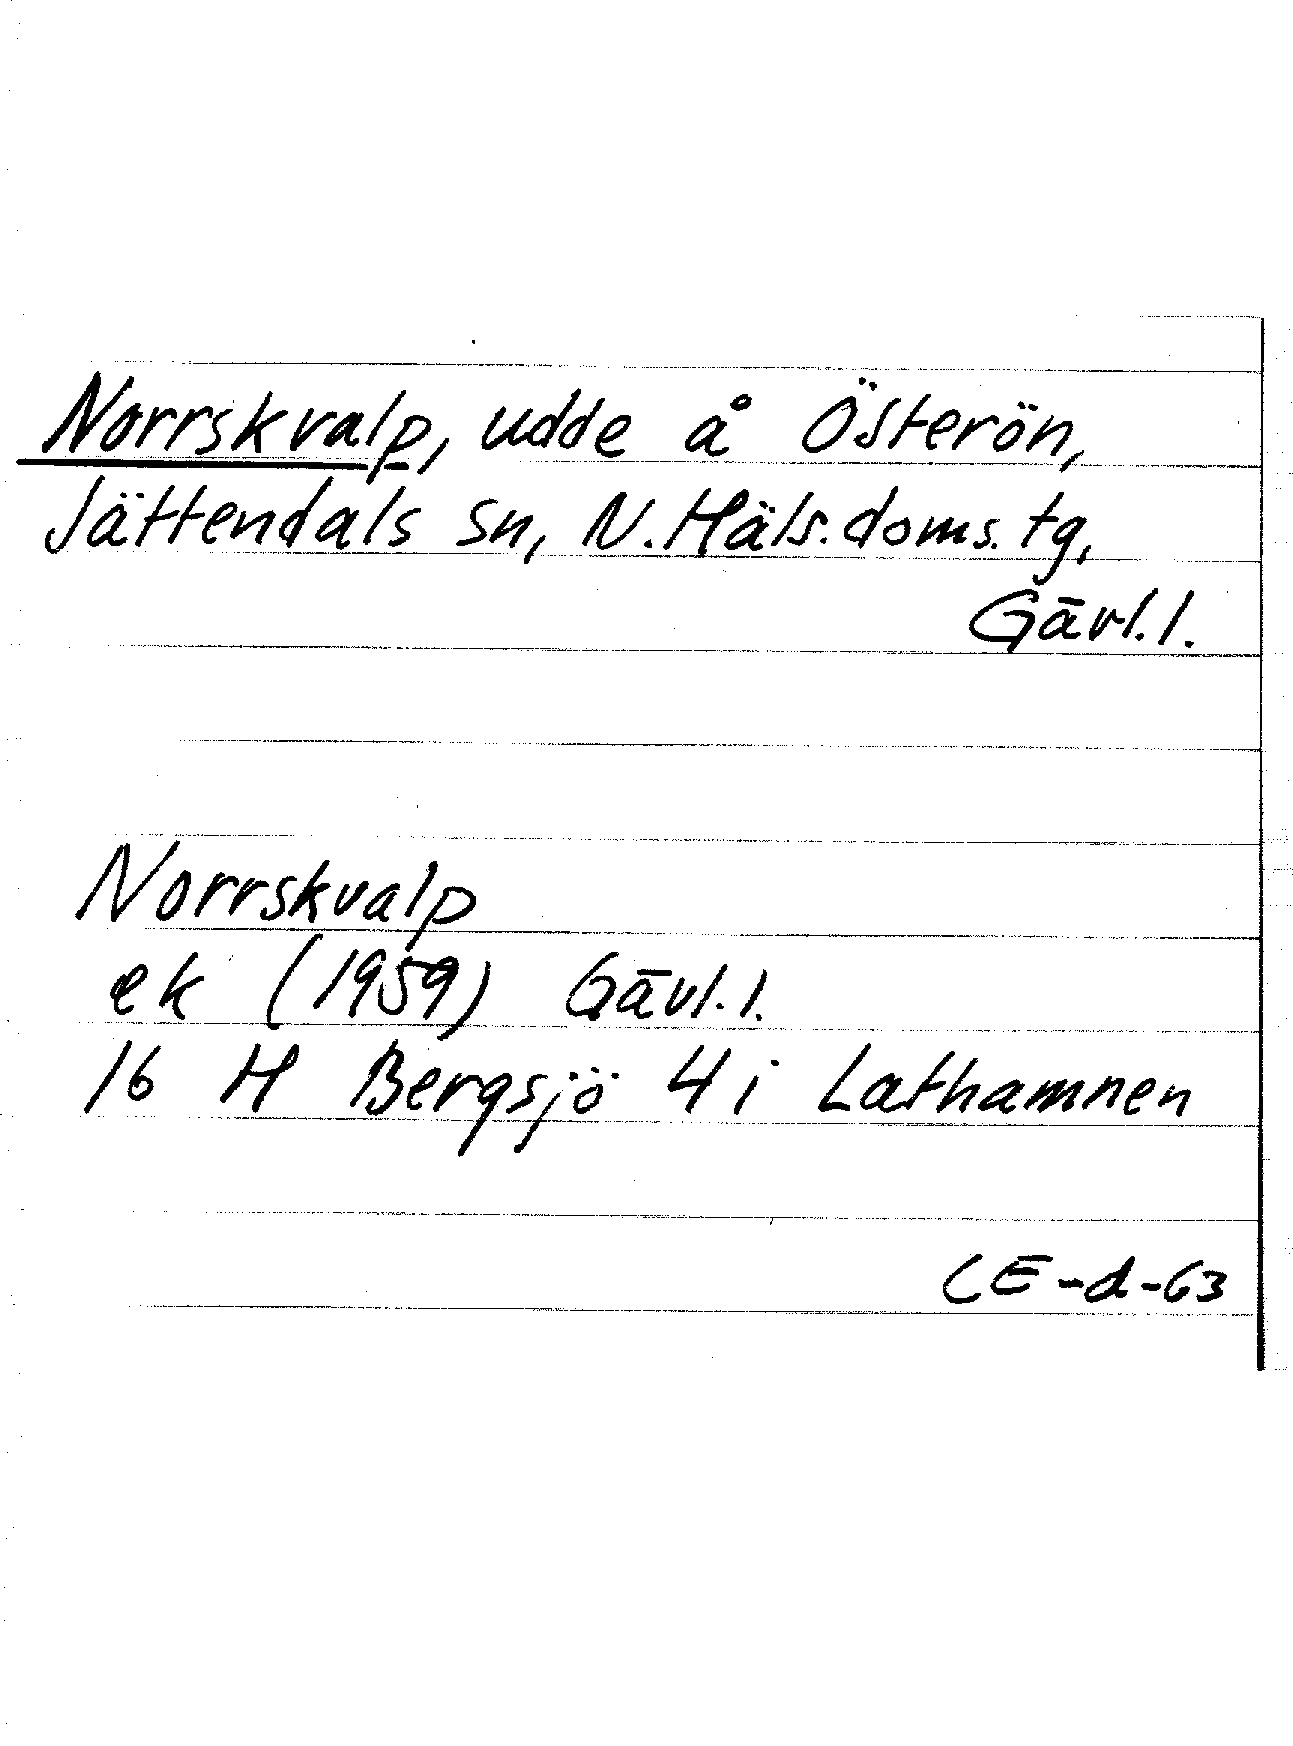 Norrskvalp, udde å Österön,
Jättendals sn, N.Häls.doms.tg,
Gävl.l.
Norrskvalp
ek (1959) Gävl.l.
16 H Bergsjö 4 i Lathamnen
CE-d-63